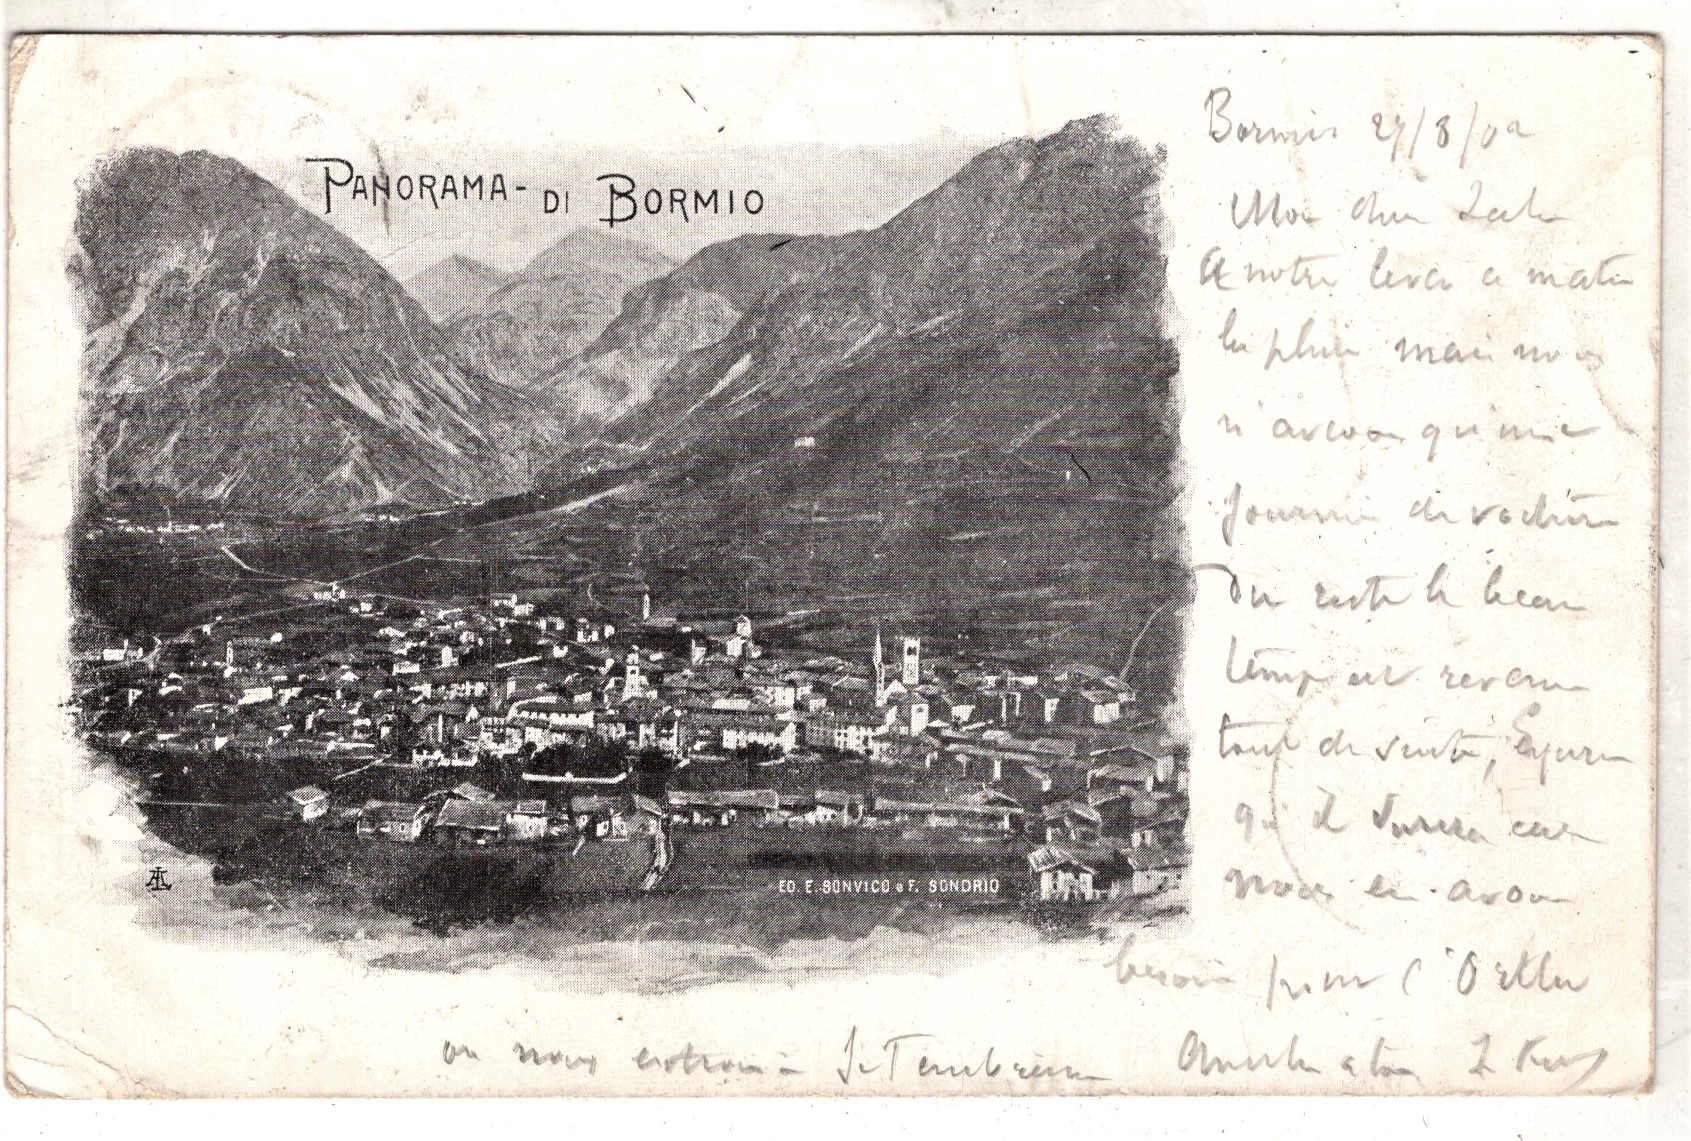 PANORAMA - DI BORMIO
ED. E. SONVICO & F. SONDRIO
Bormio 27/8/02
Mon cher
A notre lever ce matin
la pluie mais nous
n'avons qu'une
journée de voiture
Du reste le beau
temps est revenu
tout de suite,
qu'il durera car
nous en avons
besoin pour l'Ortler
où nous entrons